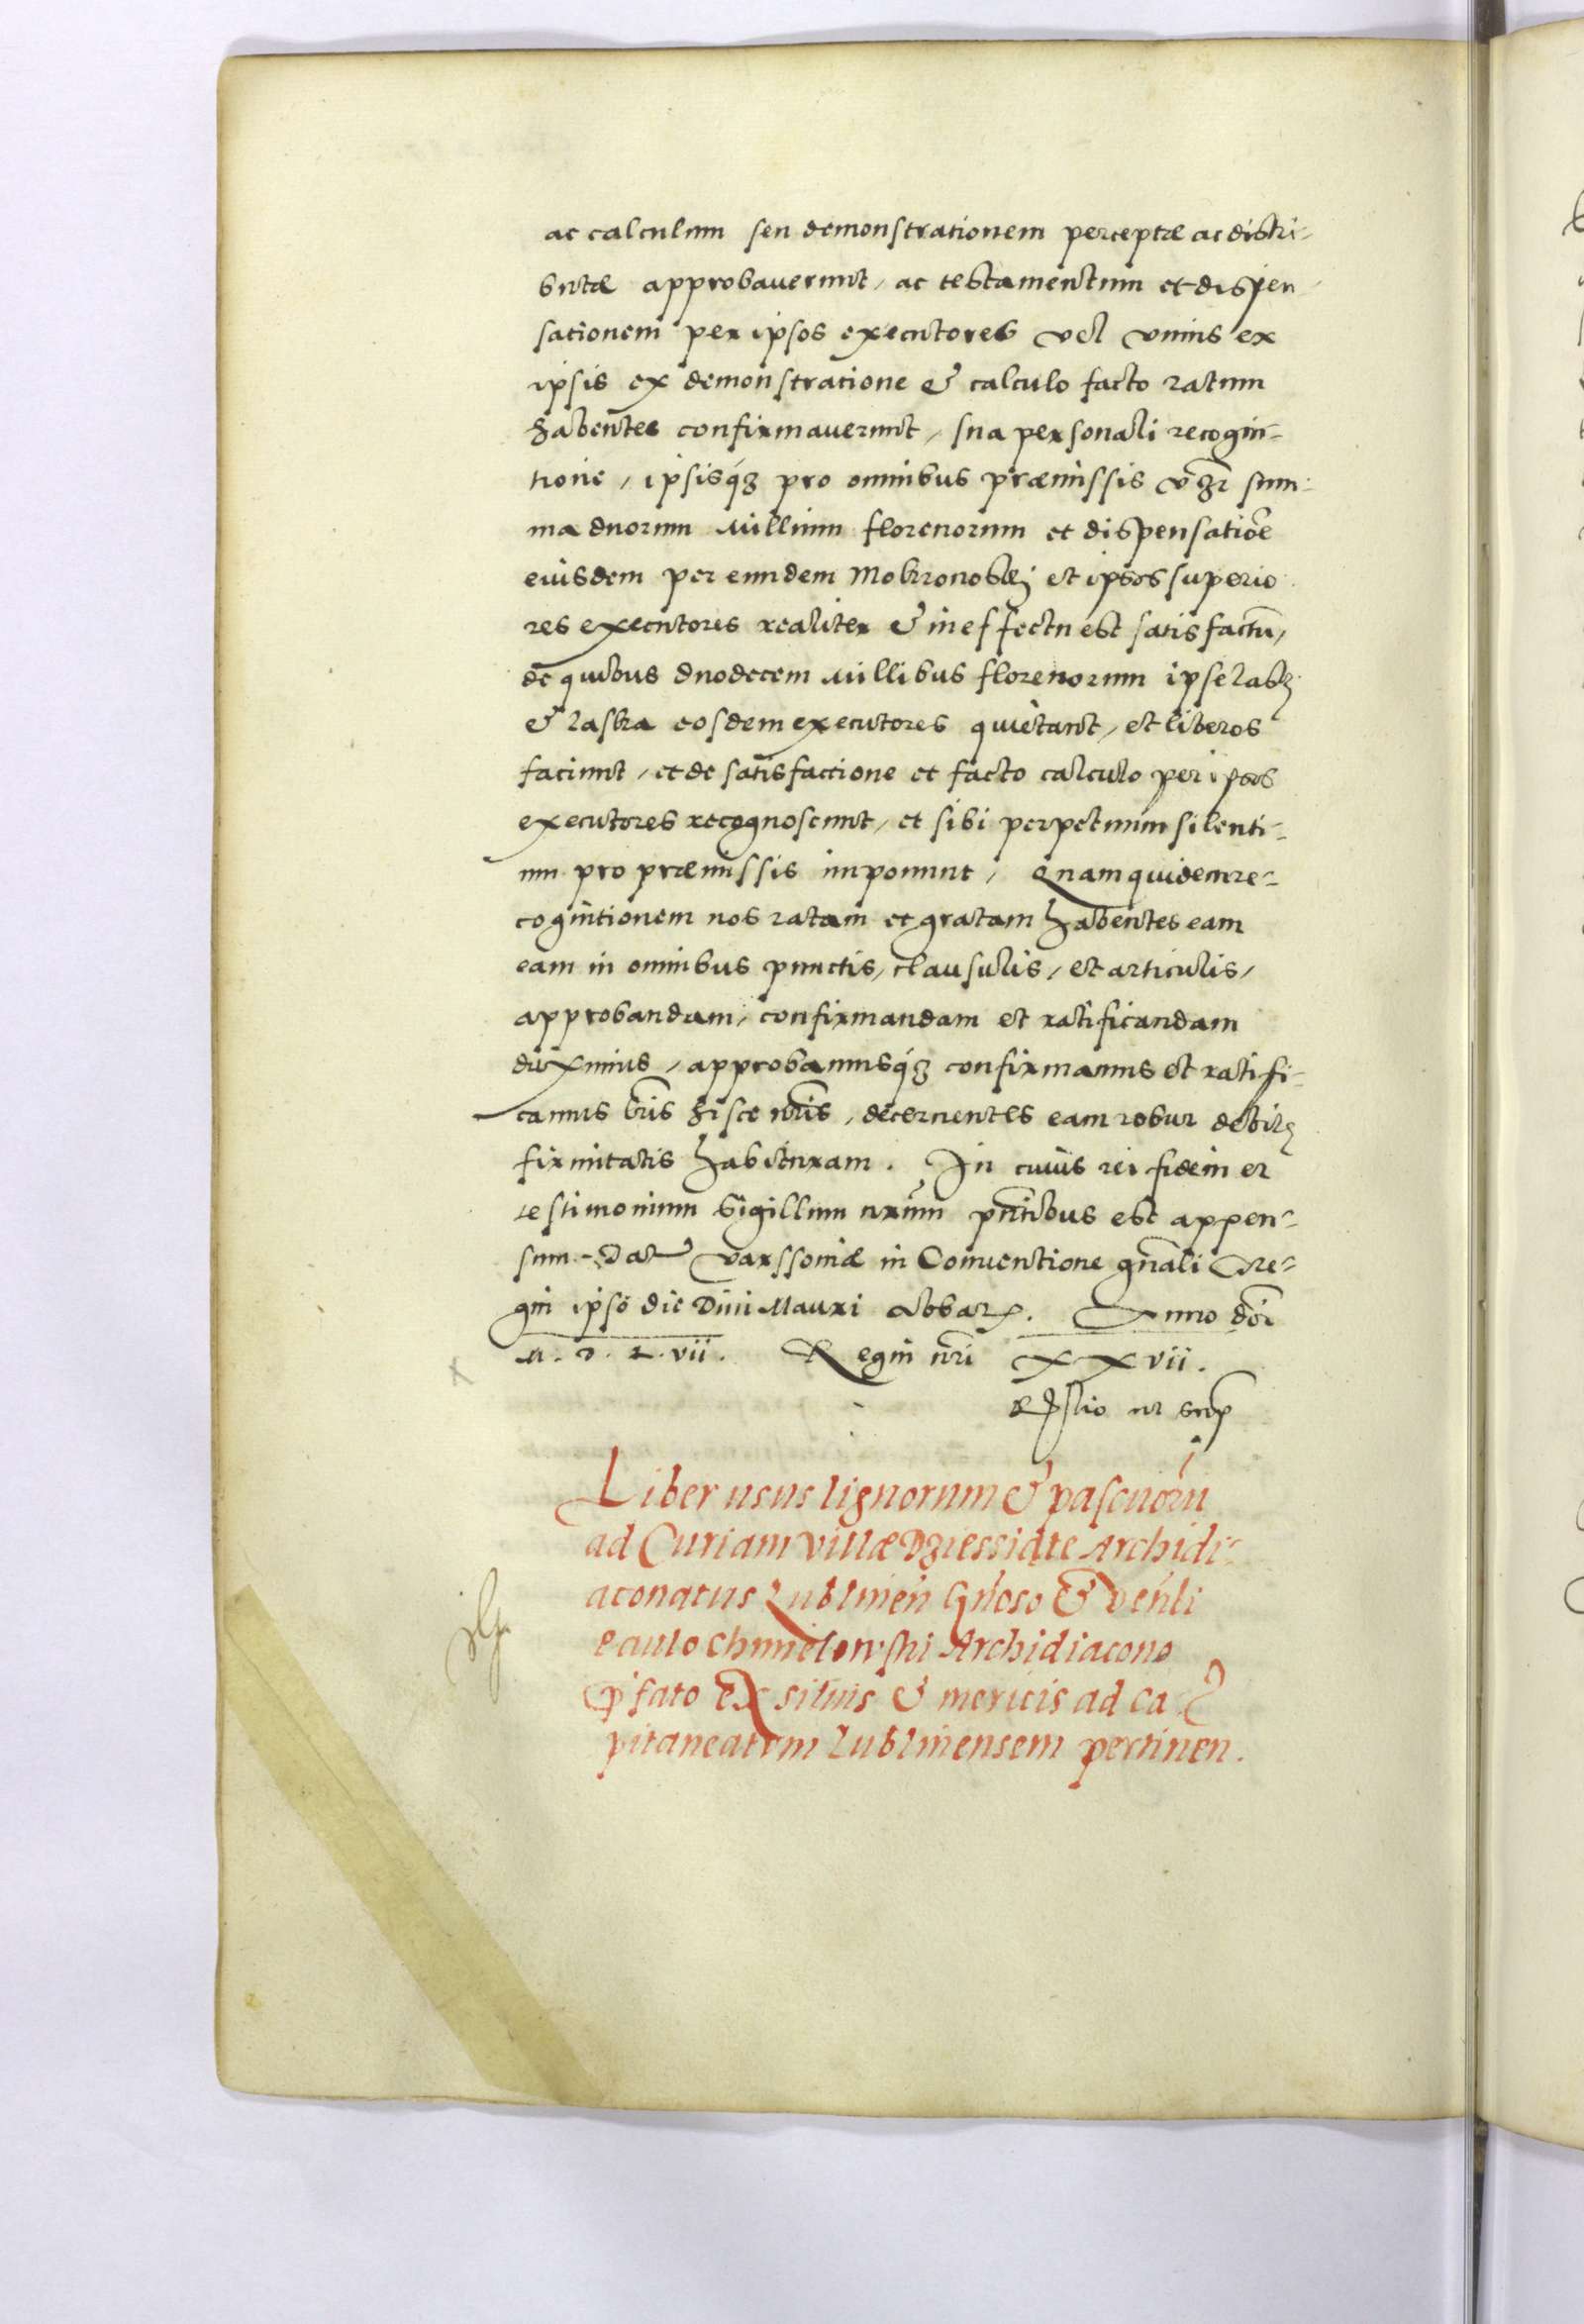 ac calculum seu demonstrationem perceptæ ac distri-
butæ approbaverunt, ac testamentum et dispen-
sationem per ipsos executores vel unius ex
ipsis ex demonstratione & calculo facto ratum
habentes confirmaverunt, sua personali recogni-
tione, ipsisq́ꝫ pro omnibus præmissis summa
ma duorum Millium florenorum et dispensatiōe
eiusdem per eundem et ipsos superio
res executores realiter & in effectu est satisfactū,
de quibus duodecem Millibus florenorum ipse
& eosdem executores quietant, et liberos
faciunt, et de satisfactione et facto calculo per ipsos
executores recognoscunt, et sibi perpetuum silenti-
um pro præmissis imponunt, Quam quidem re-
cognitionem nos ratam et gratam habentes eam
eam in omnibus punctis, clausulis, et articulis,
approbandam, confirmandam et ratificandam
duximus, approbamusq́ꝫ confirmamus et ratifi-
camus lr̄is hisce nr̄is, decernentes eam robur debitę
firmitatis habituram. In cuius rei fidem et
testimonium Sigillum nr̄um pn̄tibus est appen-
sum. Dat Varssoviæ in Conventione gn̄ali Re-
gni ipso die Divi Mauri Abbatis. Anno dōi
M.D.L.vii. Regni nr̄i XXvii.
Rełatio ut supra
Liber usus lignorum & pascuorū
ad Curiam villæ Dziessiąte Archidi-
aconatus Lublineñ Gn̄oso & Ven̄li
Paulo Chmielowski Archidiacono
p̄fato Ex silvis & mericis ad Ca
pitaneatum Lublinensem pertinen.